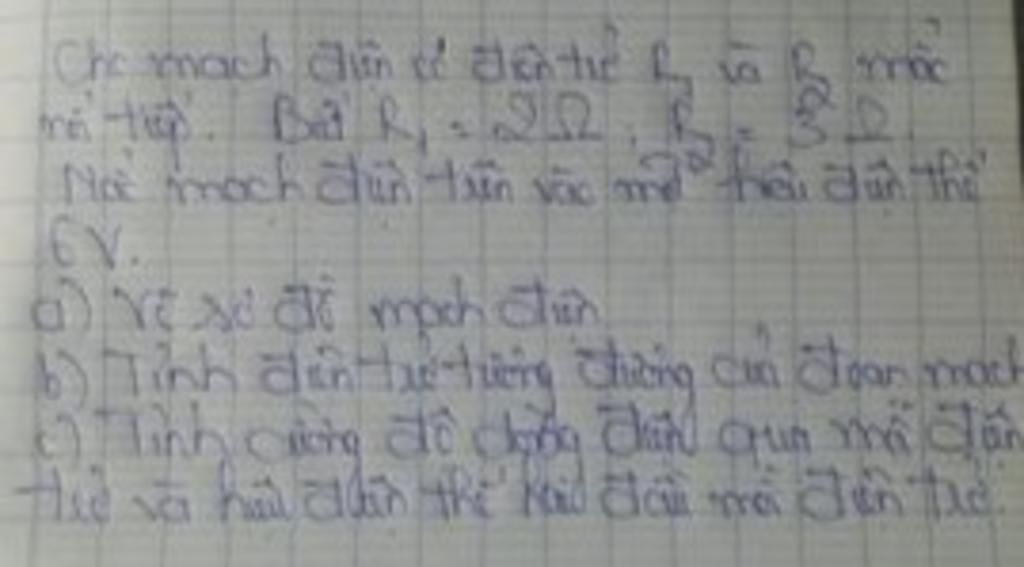 Cho mạch điện có điện trở R1 và R2 mắc
nối tiếp. Biết R1 = 2Ω. R2 = 3Ω.
Mắc mạch điện trên vào một hiệu điện thế
6V.
a) Vẽ sơ đồ mạch điện
b) Tính điện trở tương đương của đoạn mạch
c) Tính cường độ dòng điện qua mỗi điện
trở và hiệu điện thế hai đầu mỗi điện trở.